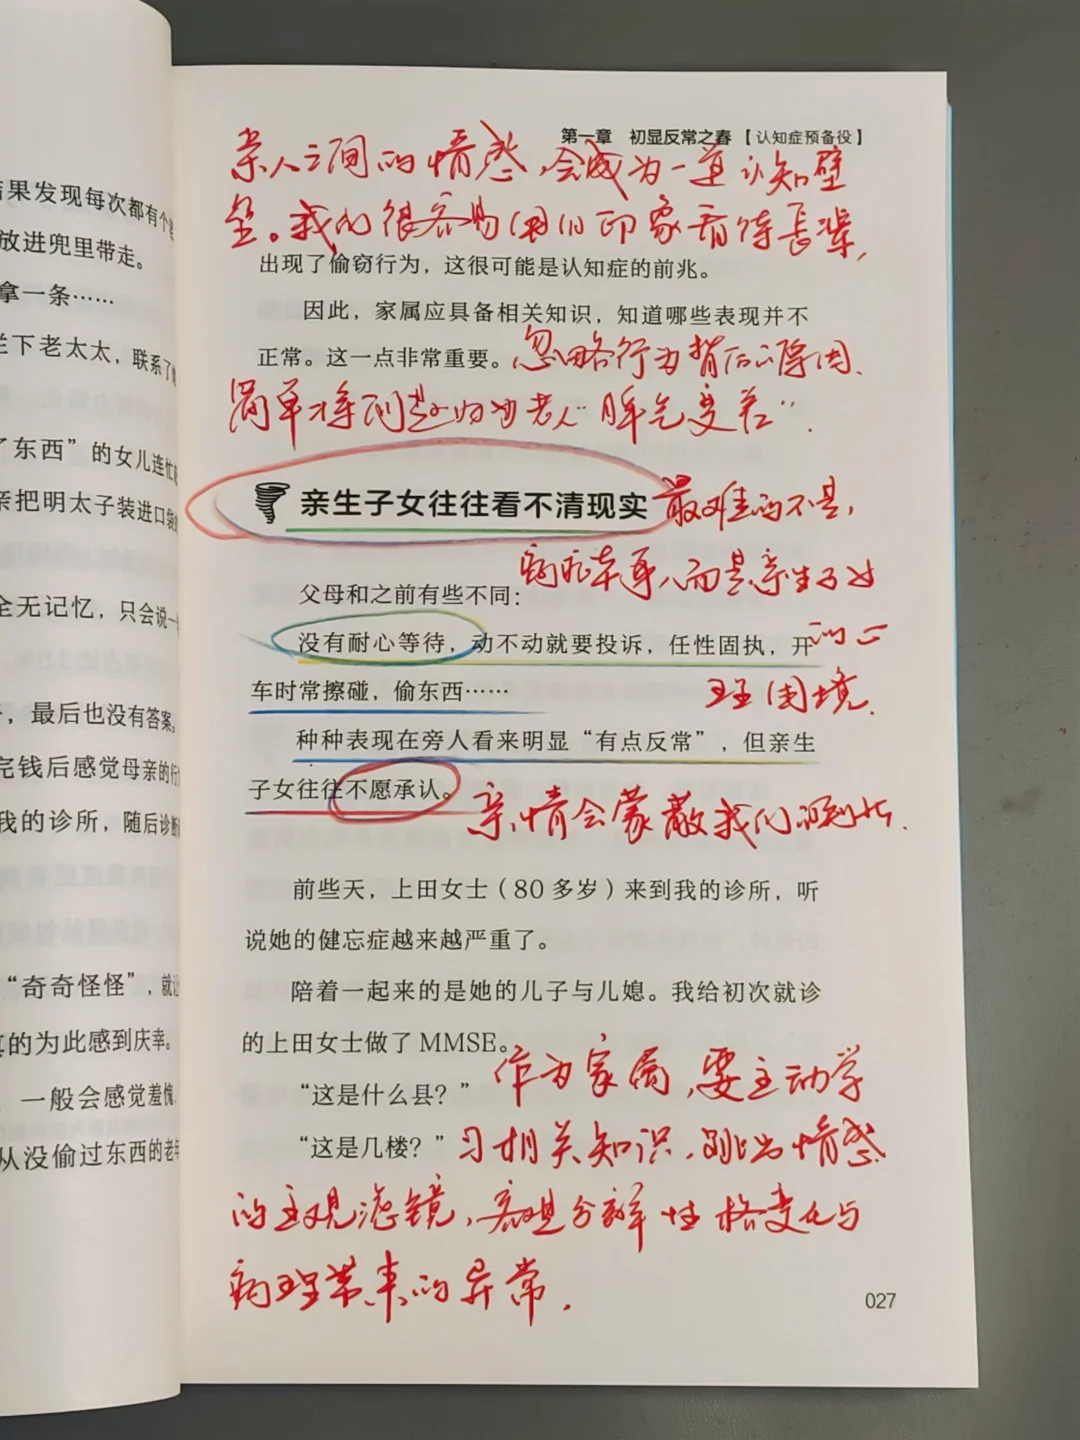 结果发现每次都有个
放进兜里带走。
拿一条……
拦下老太太，联系了
了东西”的女儿连忙
亲把明太子装进口袋
全无记忆，只会说一
，最后也没有答案。
完钱后感觉母亲的行
我的诊所，随后诊断
“奇奇怪怪”，就
真的为此感到庆幸。
一般会感觉羞愧，
从没偷过东西的老年
第一章 初显反常之春【认知症预备役】
亲人之间的情感，会成为一道认知壁
垒。我们很容易用旧印象看待长辈，
出现了偷窃行为，这很可能是认知症的前兆。
因此，家属应具备相关知识，知道哪些表现并不
正常。这一点非常重要。
忽略行为背后的原因、
简单将问题归为老人“脾气变差”．
亲生子女往往看不清现实
最难的不是，
病症本身，而是亲生子女
的心
理困境．
父母和之前有些不同：
没有耐心等待，动不动就要投诉，任性固执，开
车时常擦碰，偷东西……
种种表现在旁人看来明显“有点反常”，但亲生
子女往往不愿承认。
亲情会蒙蔽我们的判断．
前些天，上田女士（80 多岁）来到我的诊所，听
说她的健忘症越来越严重了。
陪着一起来的是她的儿子与儿媳。我给初次就诊
的上田女士做了 MMSE。
“这是什么县？”
“这是几楼？”
作为家属，要主动学
习相关知识，跳出情感
的主观滤镜，客观分辨性格变化与
病理带来的异常．
027